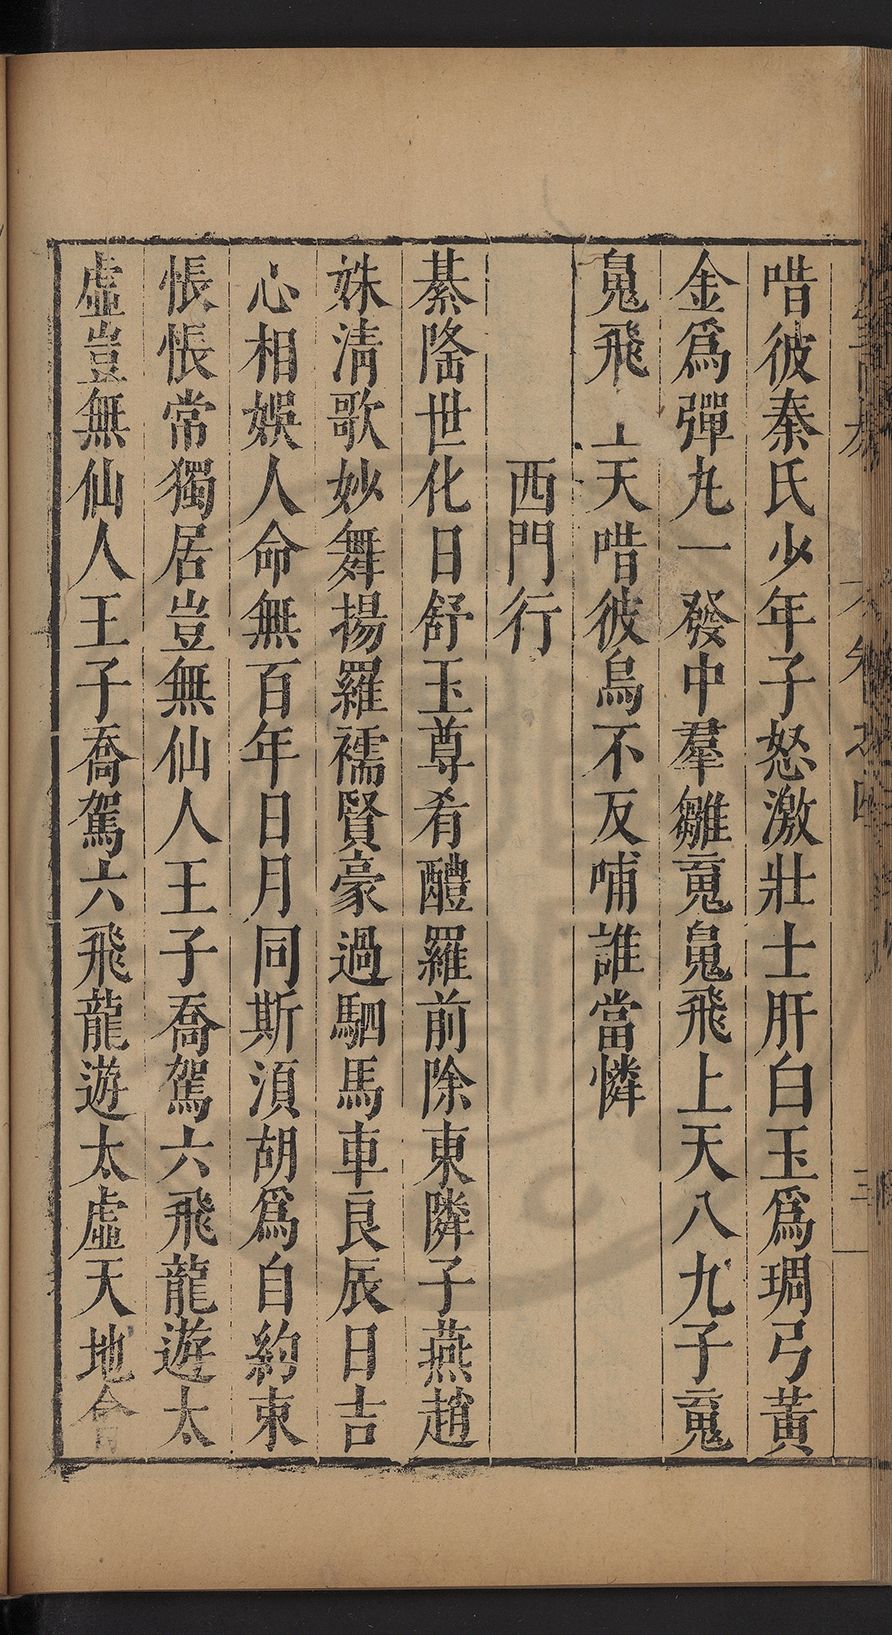 唶彼秦氏少年子怒激壯士肝白玉爲琱弓黃
金爲彈九一發中羣雛䰟䰟飛上天八九子䰟
䰟飛上天唶彼烏不反哺誰當憐
西門行
綦隆世化日舒玉尊肴醴羅前除東隣子燕趙
姝清歌妙舞揚羅襦賢豪過駟馬車良辰日吉
心相娛人命無百年日月同斯須胡爲自約束
悵悵常獨居豈無仙人王子喬駕六飛龍遊太
虛豈無仙人王子喬駕六飛龍遊太虛天地會